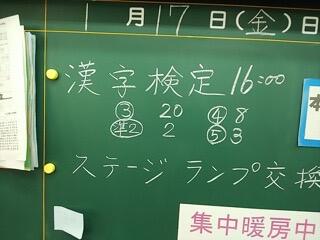 1月17日(金)日
漢字検定16:00
③ 20 ④ 8
準2 2 ⑤ 3
ステージ ランプ交換
集中暖房中
本